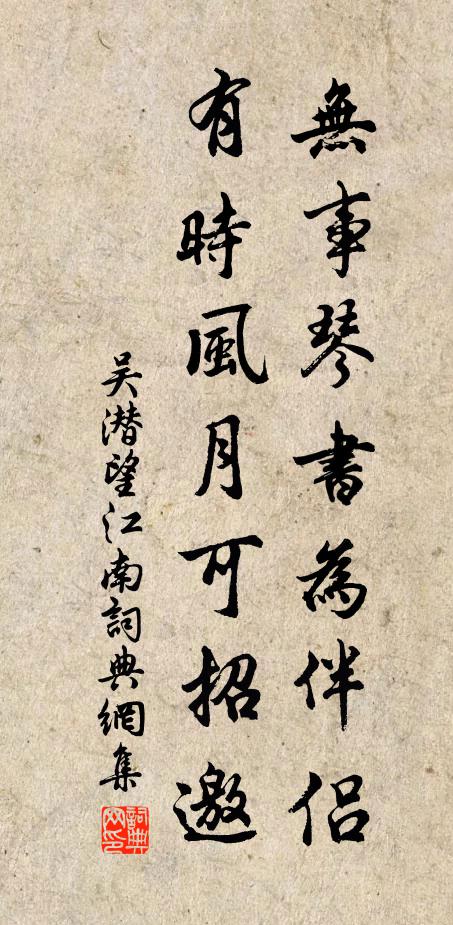 無事琴書為伴侶
有時風月可招邀
吴潜望江南詞典網集
詞典
网印